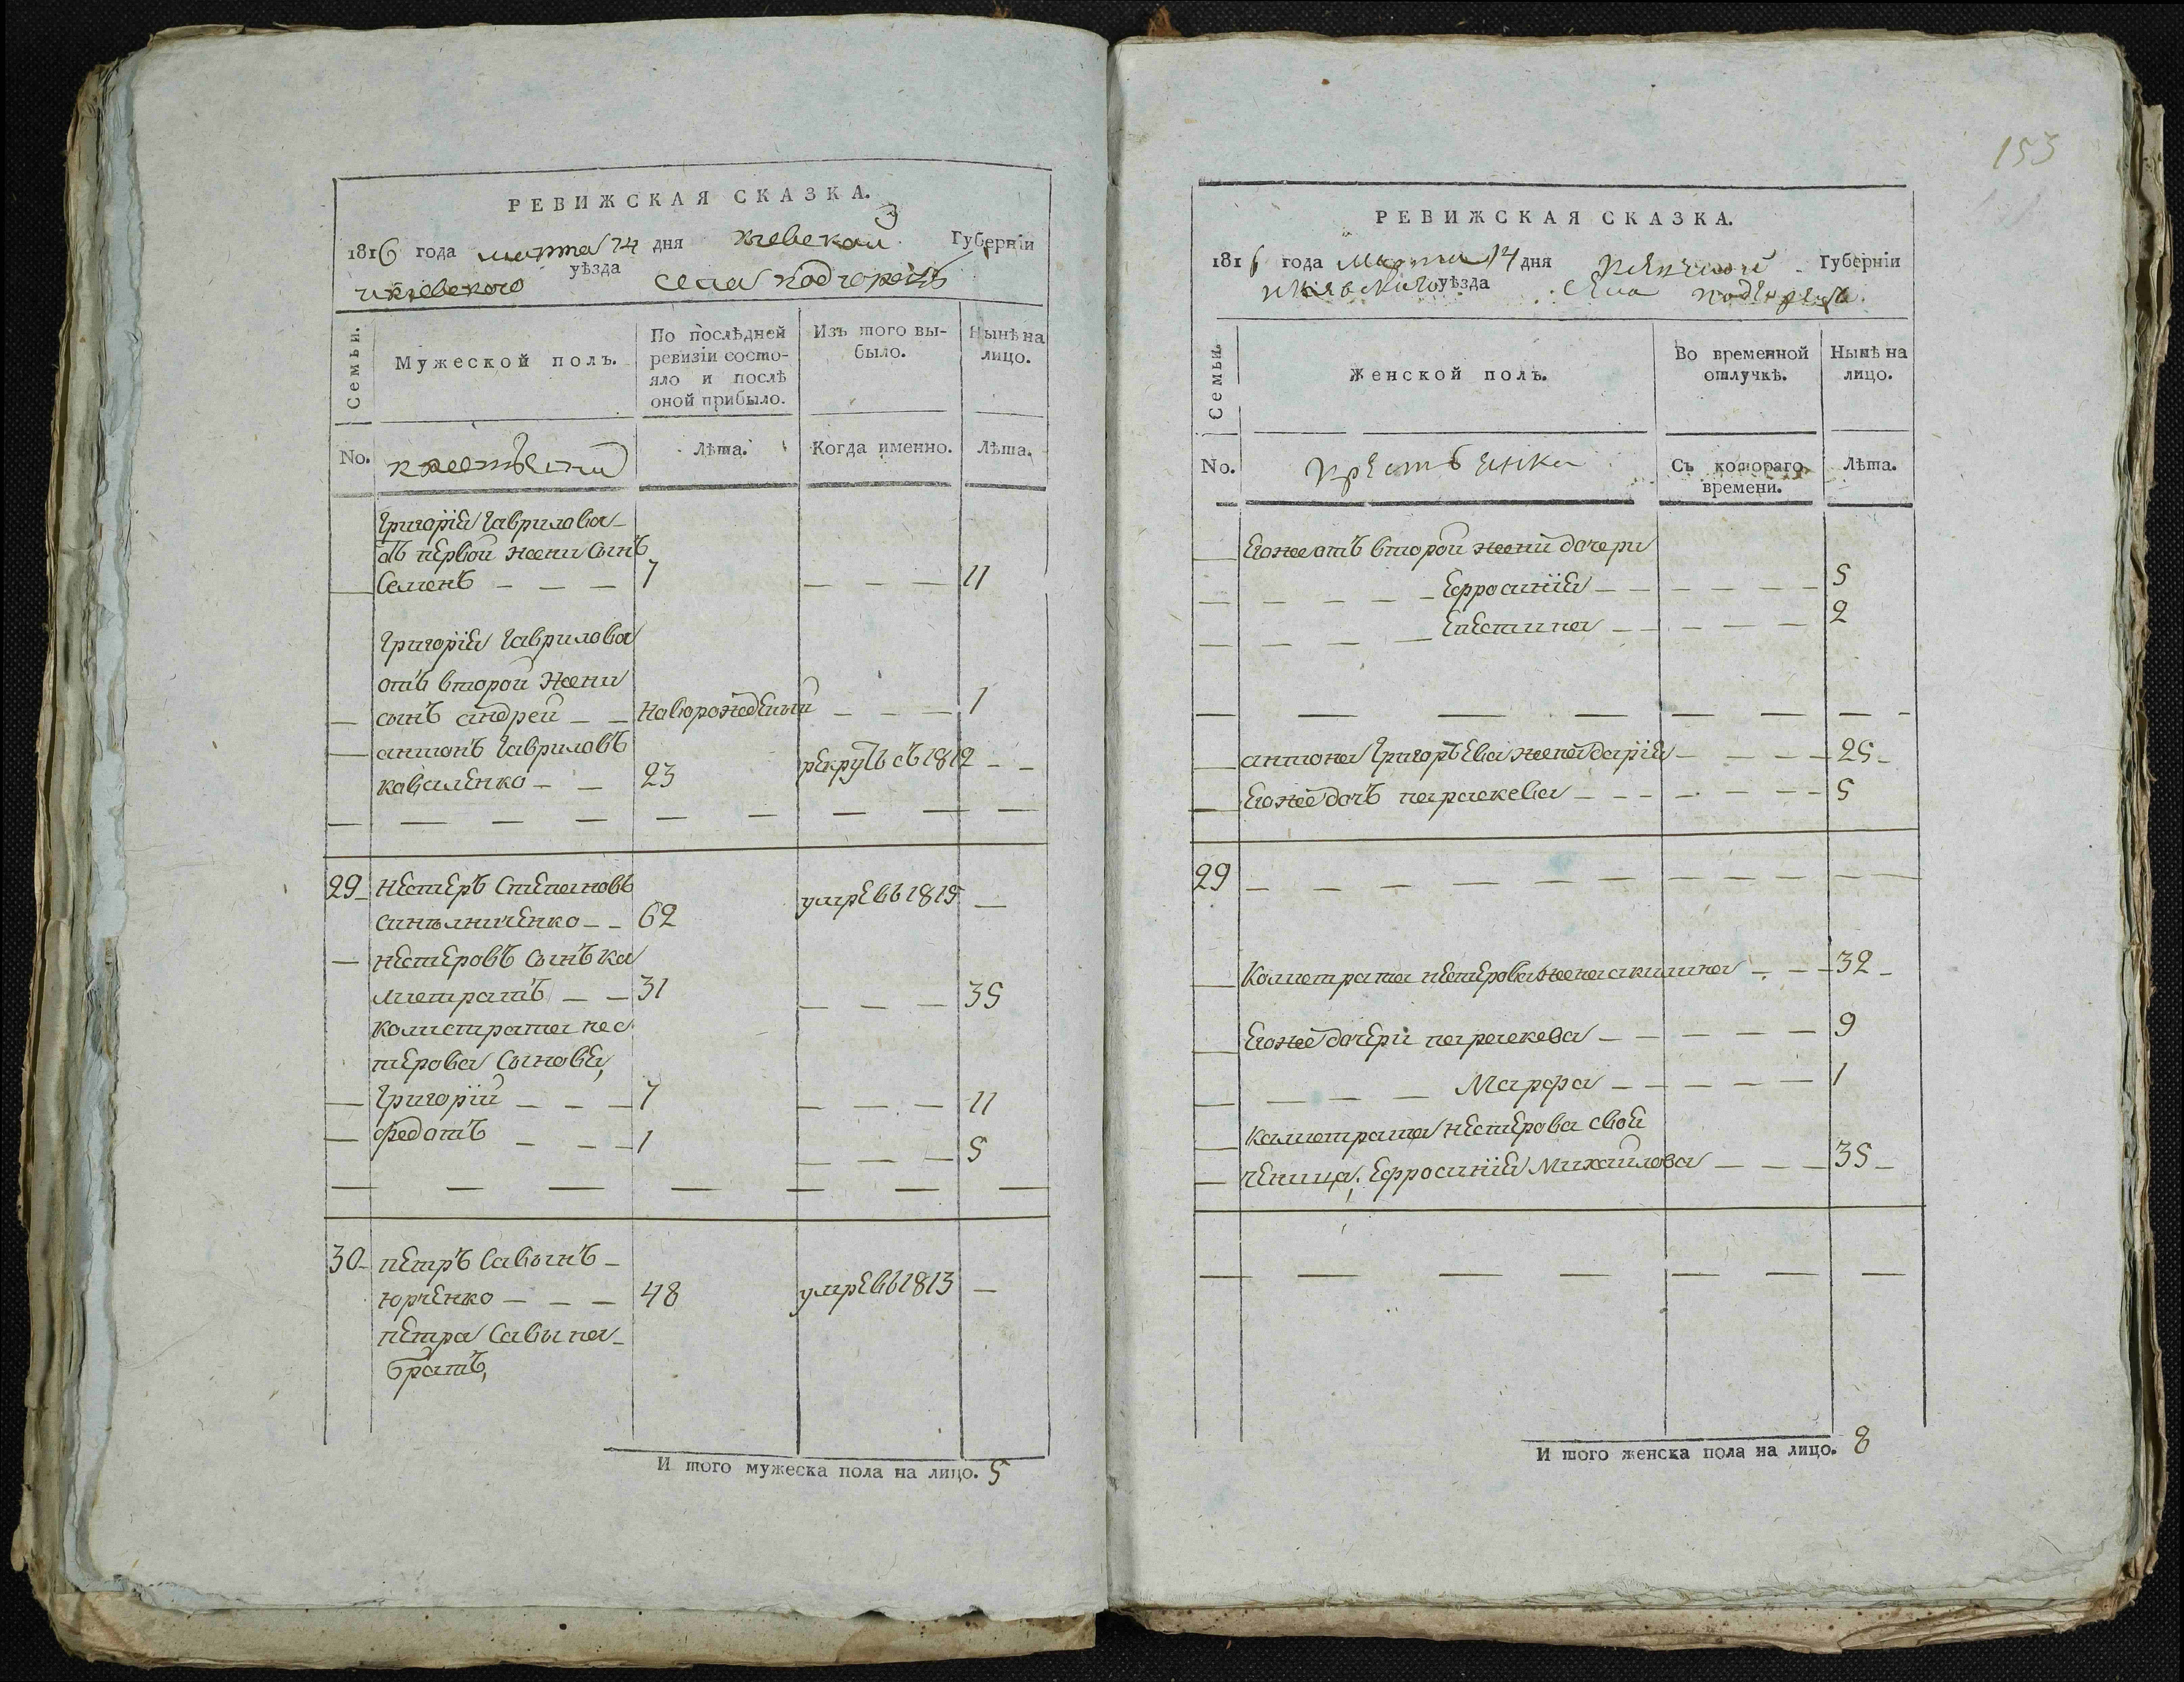 РЕВИЖСКАЯ СКАЗКА.
1816 года марта 14 дня Киевской Губерніи
и Киевского уѣзда села Подгорецъ
Семьи.
Мужеской полъ.
По послѣдней ревизіи состояло и послѣ оной прибыло.
Изъ того выбыло.
Нынѣ на лицо.
No.
Лѣта.
Когда именно.
Лѣта.
Григорія Гаврилова
отъ первой жени Синъ
Семенъ — — — 7 — — — 11
Григорія Гаврилова
отъ второй Жени
синъ андрей — — Новорожденый — — — 1
антонъ Гавриловъ
коваленко — — 23 рекрутъ съ 1812 — —
29 Нестеръ Степановъ
62 умре въ 1815 —
— нестеровъ Синъ ка
листратъ — — 31 — — — 35
калистрата нес
терова Синовя,
— Григорій — — — 7 — — — 11
— Федотъ — — — 1 — — — 5
30 петръ Савинъ —
юрченко — — — 48 умре въ 1813 —
петра Савина
братъ,
И того мужеска пола на лицо. 5
153
РЕВИЖСКАЯ СКАЗКА.
1816 года Марта 14 дня Киевской Губерніи
и Киевского уѣзда Села Подгорецъ
Семьи.
Женской полъ.
Во временной отлучкѣ.
Нынѣ на лицо.
No.
Съ котораго времени.
Лѣта.
Егоже отъ второй жени дочери
Ефросинія — — — — — — 5
— — — — — — 2
антона Григорьева жена дарія — — — — 25 —
Егоже дочъ параскева — — — — — — 5
29 — — — — — — — — — — —
Калистрата нестерова жена акилина — — — 32 —
Егоже дочери параскева — — — — — 9
Марфа — — — — — 1
Калистрата нестерова свой
ченица, Ефросинія Михайлова — — — 35 —
И того женска пола на лицо. 8